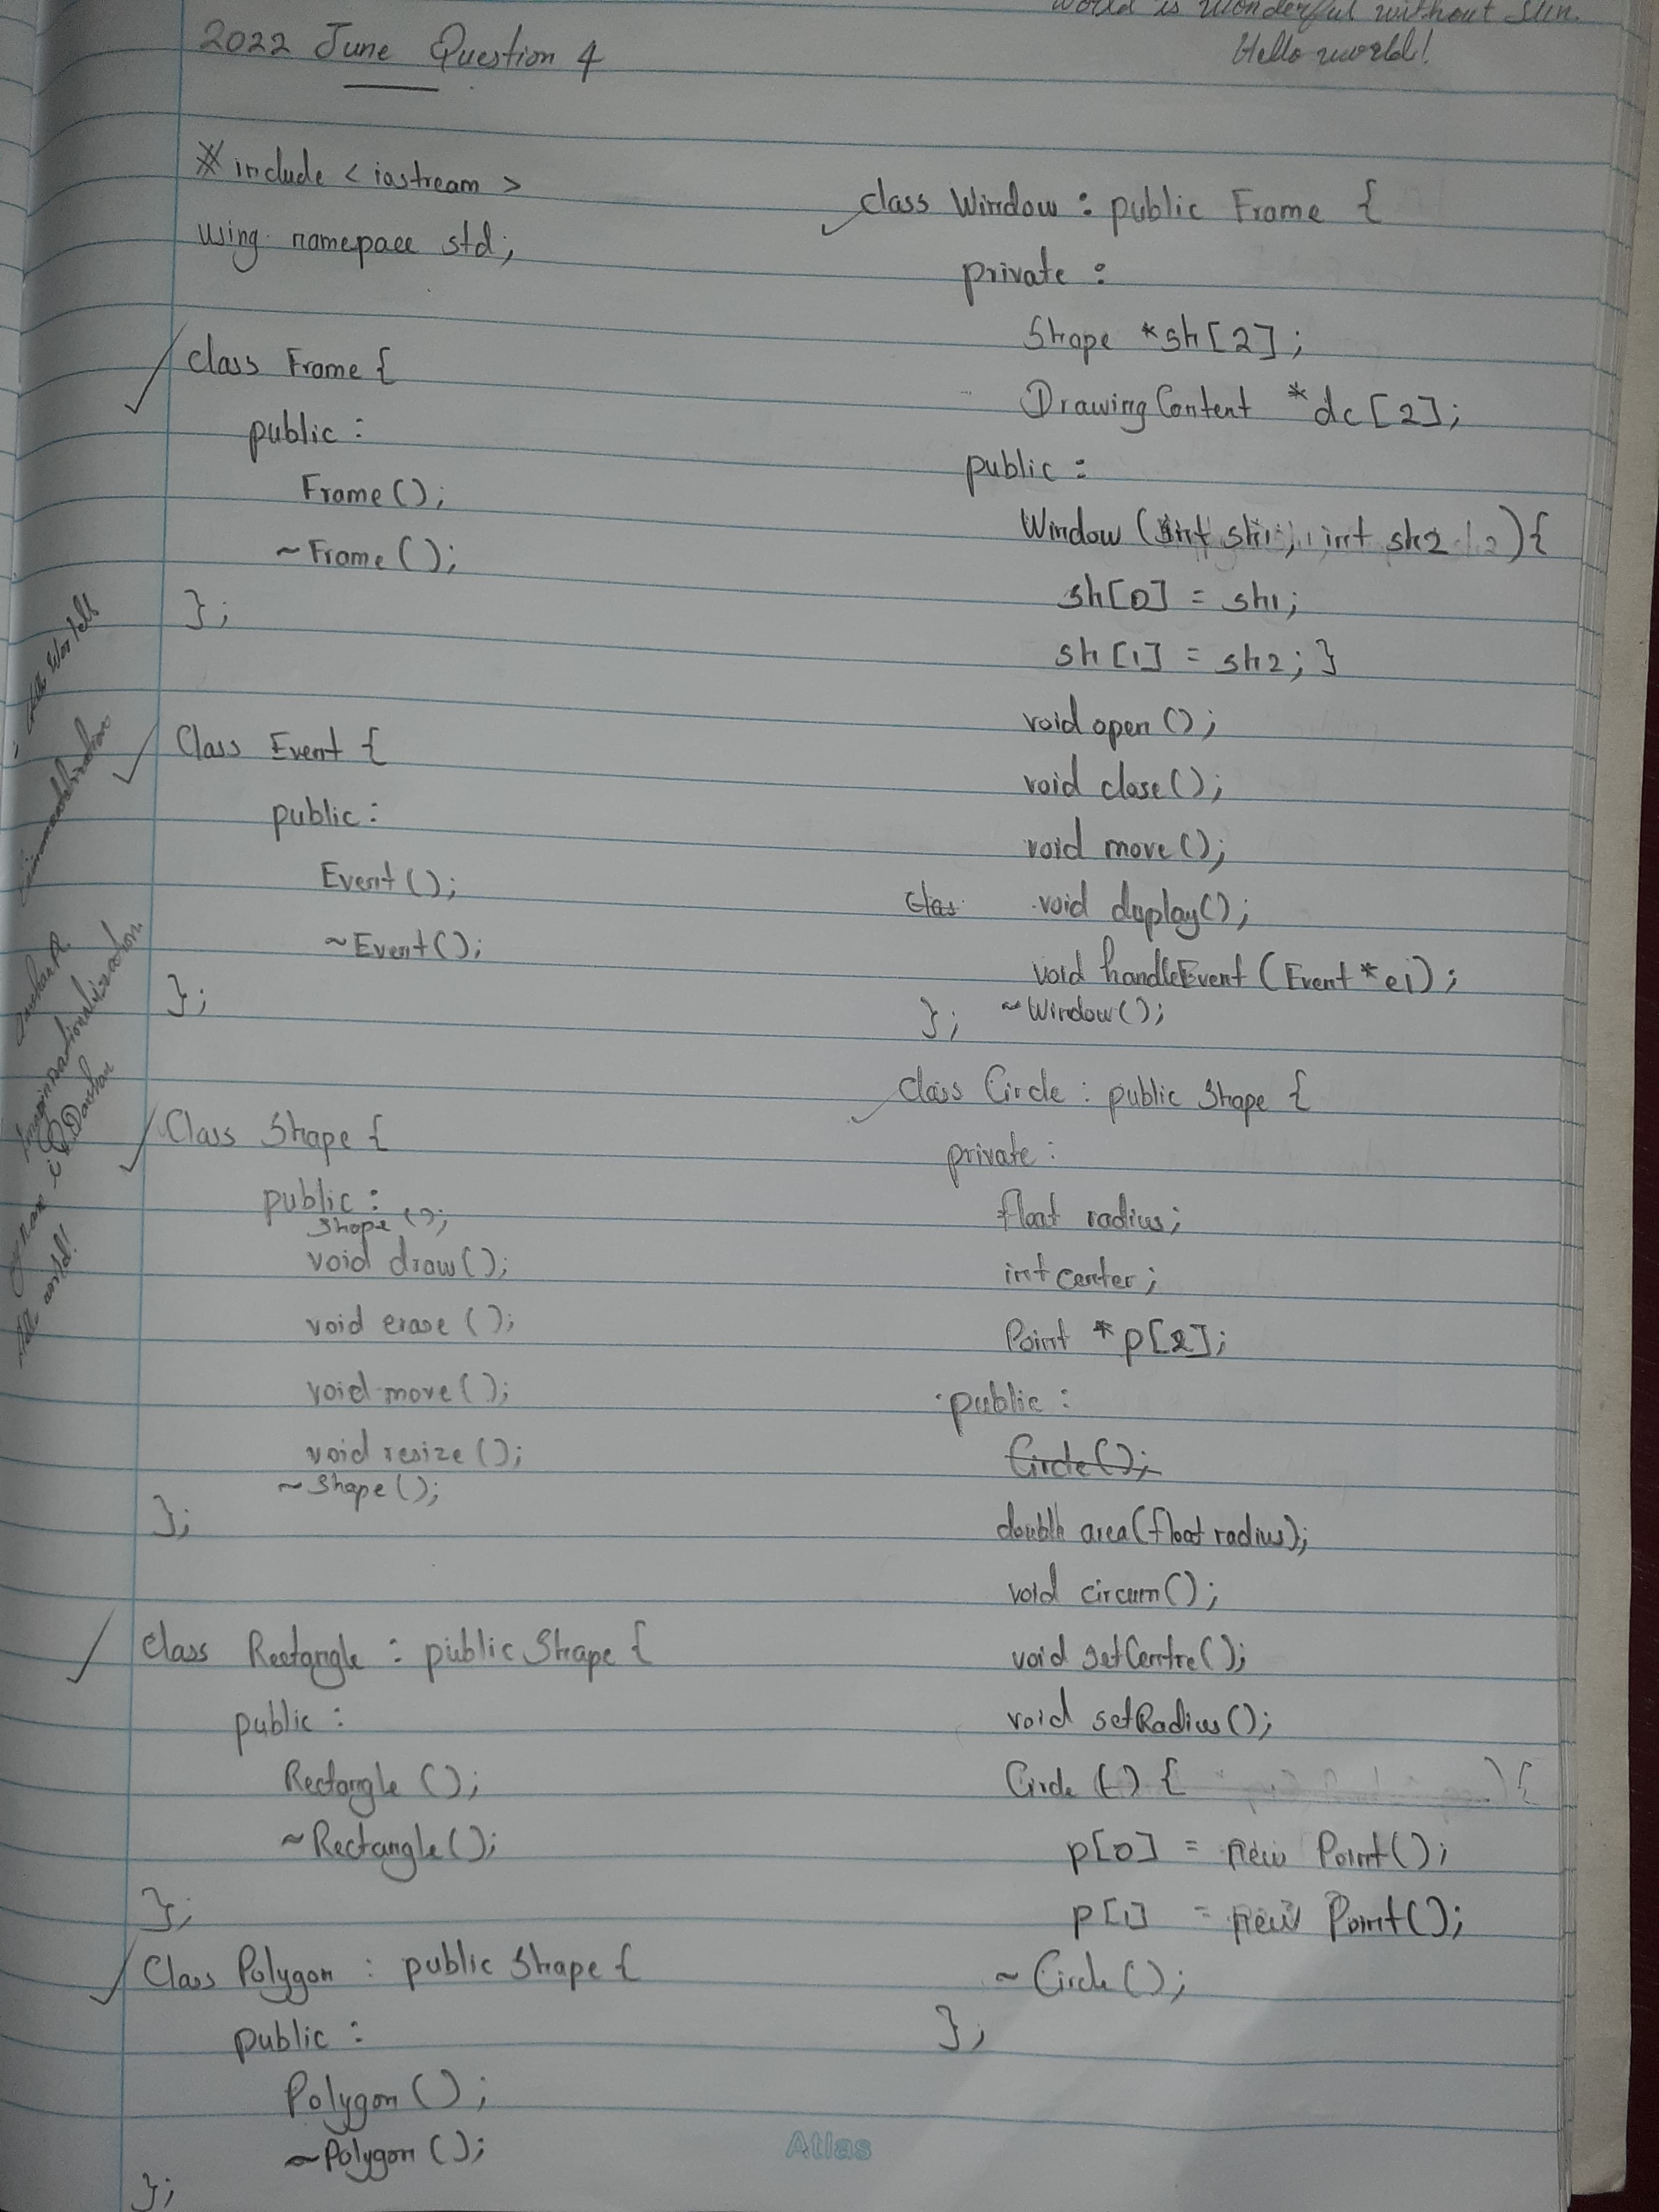 World is Wonderful without Sun.
Hello world!
2022 June Question 4
#include <iostream>
using namepace std;
class Frame {
public:
Frame();
~Frame();
};
Class Event {
public:
Event();
~Event();
};
Class Shape {
public:
Shape();
void draw();
void erase();
void move();
void resize();
~Shape();
};
class Rectangle : public Shape {
public:
Rectangle();
~Rectangle();
};
Class Polygon : public Shape {
public:
Polygon();
~Polygon();
};
class Window : public Frame {
private:
Shape *sh[2];
DrawingContent *dc[2];
public:
Window(int sh1, int sh2){
sh[0] = sh1;
sh[1] = sh2; }
void open();
void close();
void move();
Clas void display();
void handleEvent(Event *ei);
~Window();
};
class Circle : public Shape {
private:
float radius;
int center;
Point *p[2];
public:
Circle();
double area(float radius);
void circum();
void setCentre();
void setRadius();
Circle() {
p[0] = new Point();
p[1] = new Point();
~Circle();
};
Atlas